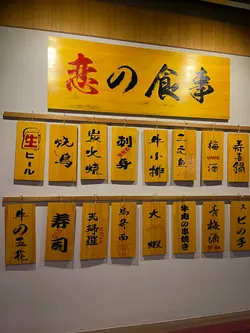 恋の食事
生ビール
焼鳥
炭火焼
刺身
牛小排
梅酒
寿喜鍋
牛の五花
寿司
天婦羅
大蝦
牛肉の串焼き
青梅酒
エビの手